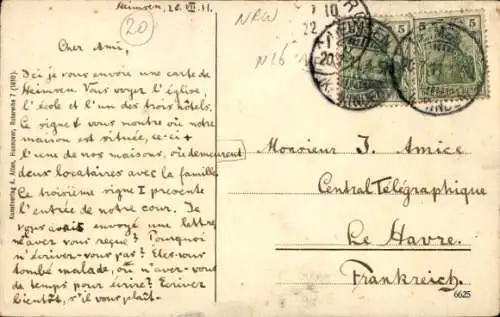 Heimsen, 20. VII. 11.
20
NRW
N16
Cher Ami,
Ici je vous envoie une carte de
Heimsen. Vous voyez l'église,
l'école et l'un des trois hôtels.
Le signe x vous montre où notre
maison est située, ce-ci +
l'une de nos maisons, où demeurent
deux locataires avec la famille.
Le troisième signe I présente
l'entrée de notre cour. Je
vous avais envoyé une lettre,
l'avez vous reçue? Pourquoi
n'écrivez-vous pas? Etes-vous
tombé malade, où n'avez-vous
de temps pour écrire? Ecrivez
bientôt, s'il vous plaît.-
Monsieur J. Amice
Central Télégraphique
Le Havre.
Frankreich.
6625
Kunstverlag A. Alten, Hannover, Rotereihe 7 (1910).
5
5